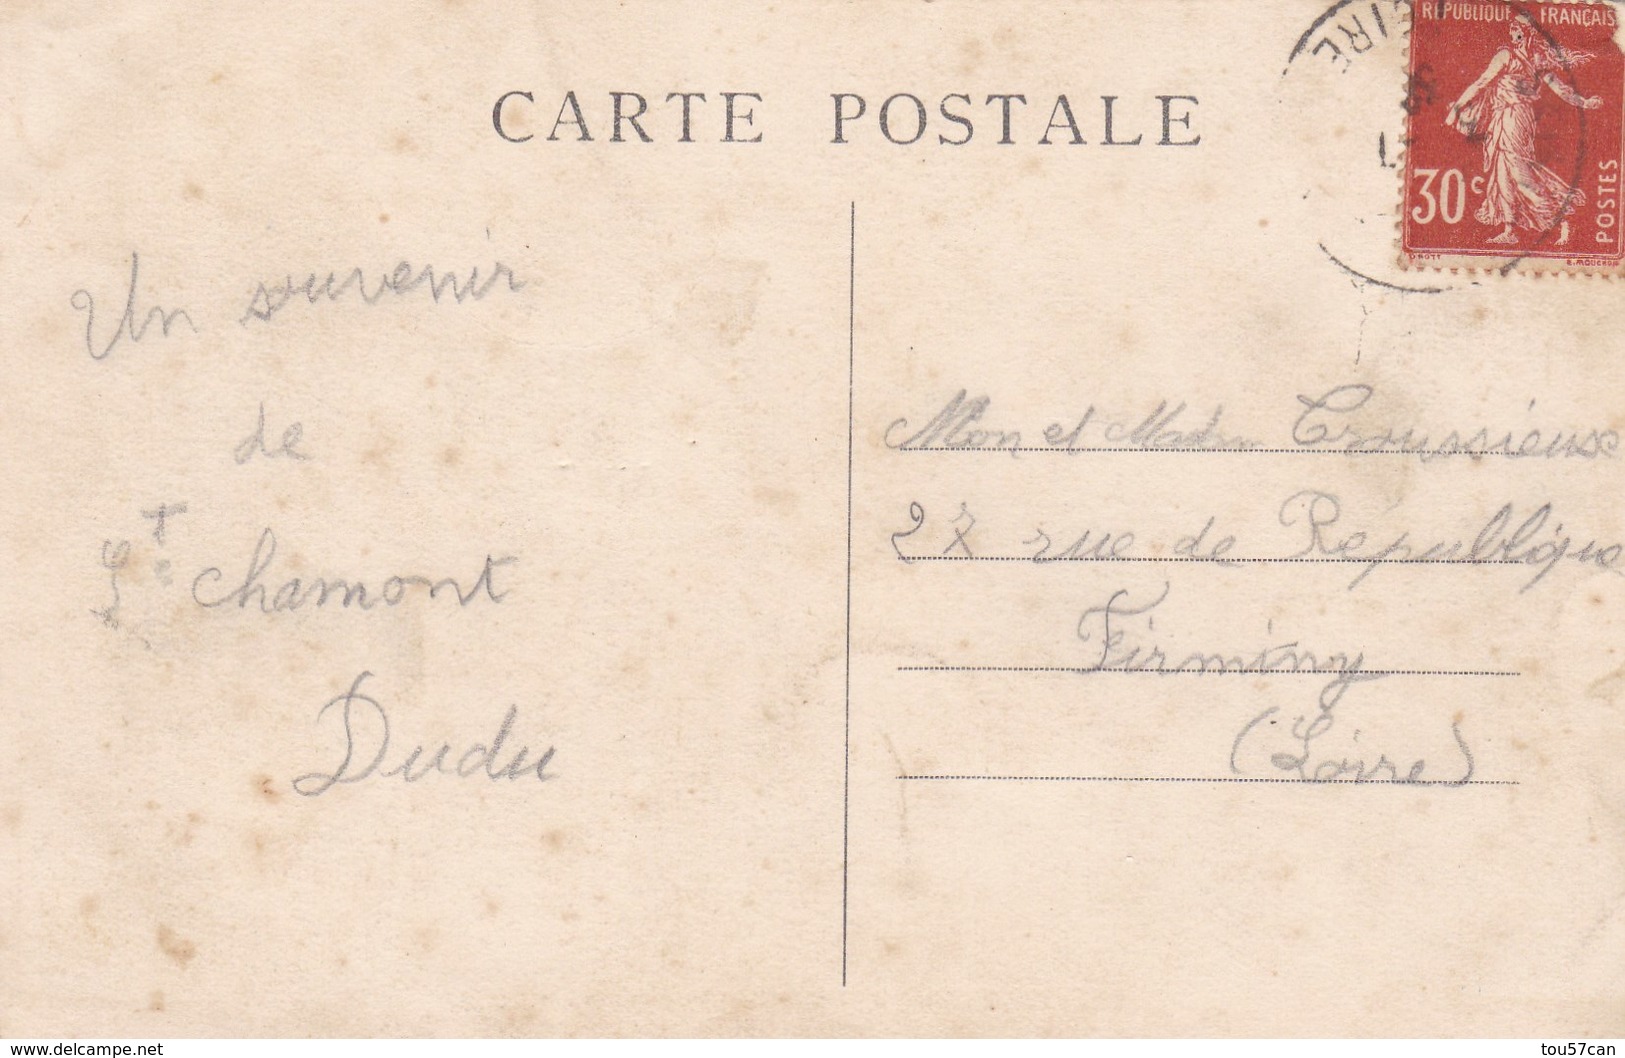 CARTE POSTALE
REPUBLIQUE FRANÇAIS
30 c
POSTES
O.ROTY
E.MOUCHON
OIRE
Un souvenir
de
St Chamont
Dudu
Mon et Madm Croussieux
27 rue de Republique
Firminy
(Loire)
www.delcampe.net
tou57can